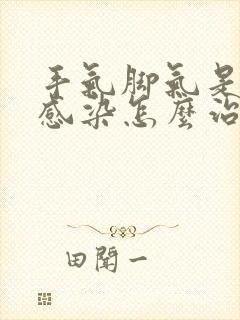 手氣脚氣是
感染怎麼治
田聞一